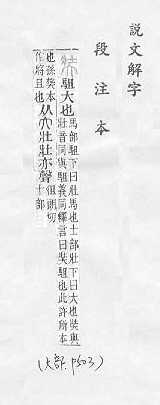 說文解字
段注本
駔大也馬部駔下曰壯馬也士部壯下曰大也奘與
壯音同與駔義同釋言曰奘駔也此許所本
也孫樊本
作將且也从大壯壯亦聲徂朗切
十部
(大部. P503)